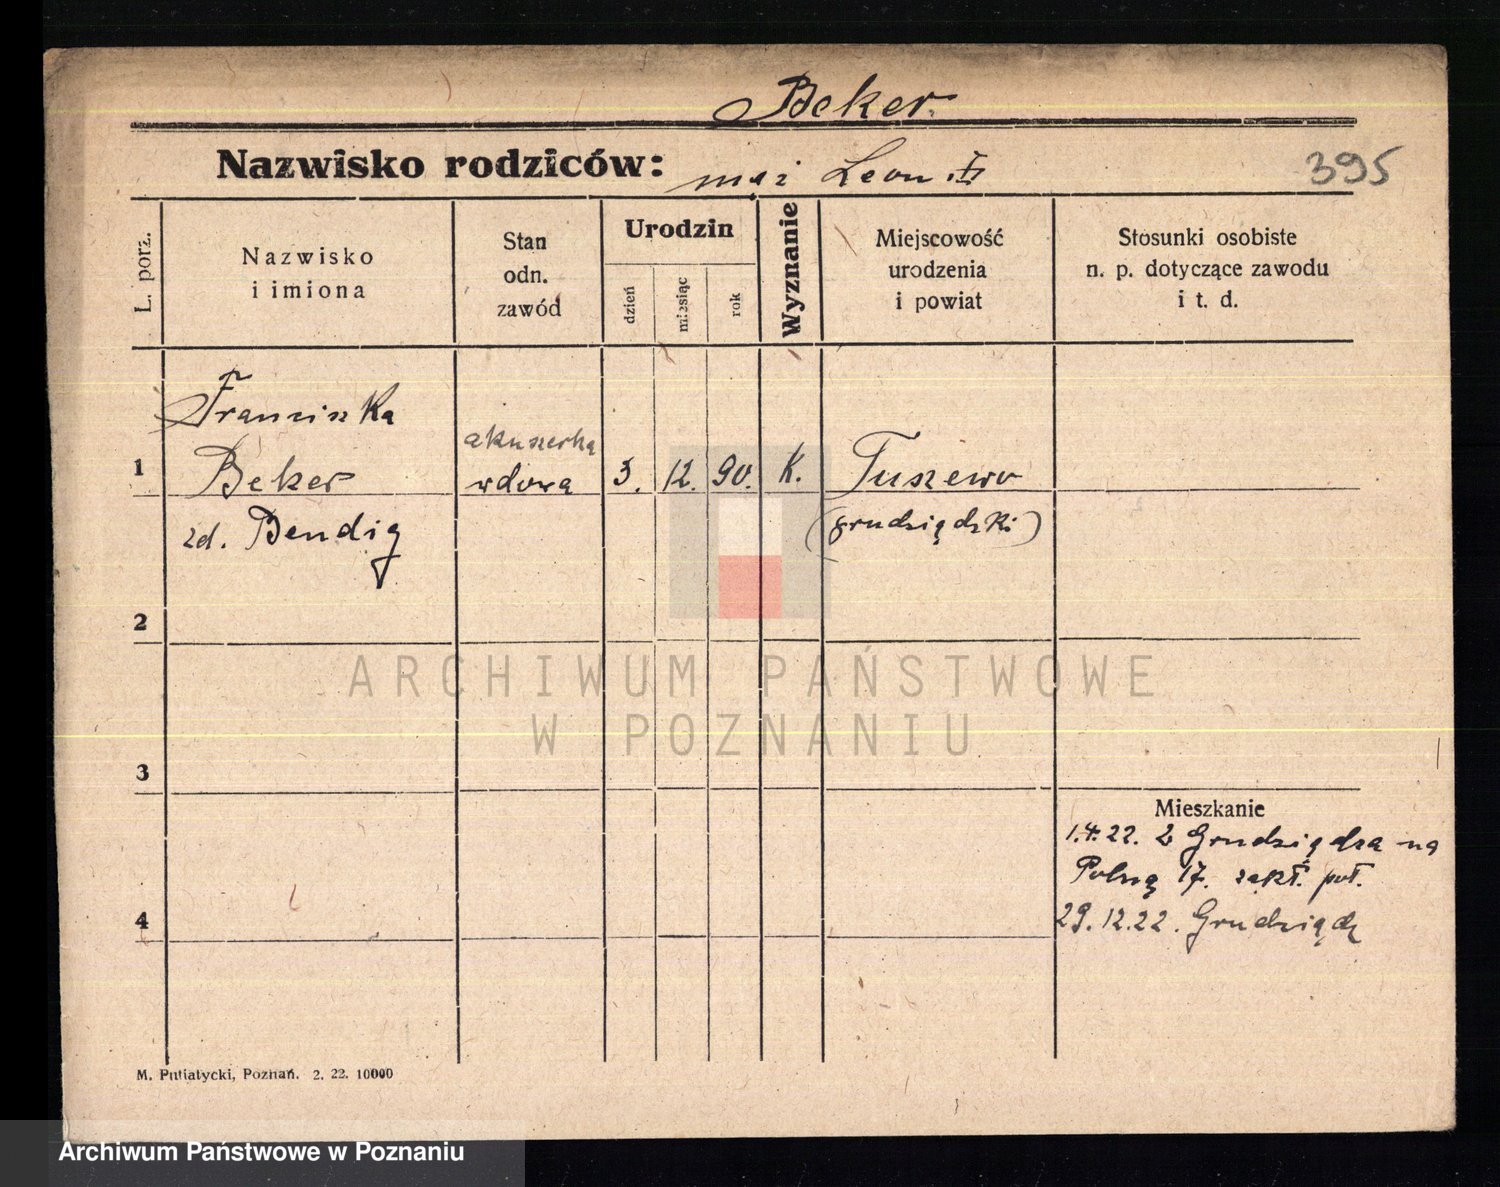 Beker
Nazwisko rodziców: mąż Leon
395
L. porz.
Nazwisko
i imiona
Stan
odn.
zawód
Urodzin
dzień
miesiąc
rok
Wyznanie
Miejscowość
urodzenia
i powiat
Stosunki osobiste
n. p. dotyczące zawodu
i t. d.
1
Franciszka
Beker
zd. Bendig
akuszerka
wdowa
3. 12. 90. K.
Tuszewo
(grudziądzki)
2
ARCHIWUM PAŃSTWOWE
W POZNANIU
3
Mieszkanie
1.4.22. z Grudziądza na
Polną 17. zakł. poł.
29.12.22. Grudziądz
4
M. Putiatycki, Poznań. 2. 22. 10000
Archiwum Państwowe w Poznaniu